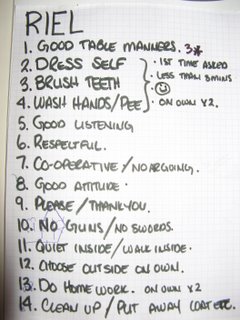 RIEL
1. GOOD TABLE MANNERS. 3*
2. DRESS SELF · 1ST TIME ASKED
3. BRUSH TEETH · LESS THAN 5 MINS
4. WASH HANDS/PEE · ON OWN X2.
5. GOOD LISTENING
6. RESPECTFUL.
7. CO-OPERATIVE/NO ARGOING.
8. GOOD ATTITUDE.
9. PLEASE/THANKYOU.
10. NO GUNS/NO SWORDS.
11. QUIET INSIDE/WALK INSIDE.
12. CHOOSE OUTSIDE ON OWN.
13. DO HOMEWORK. ON OWN X2
14. CLEAN UP/PUT AWAY COAT ETC.